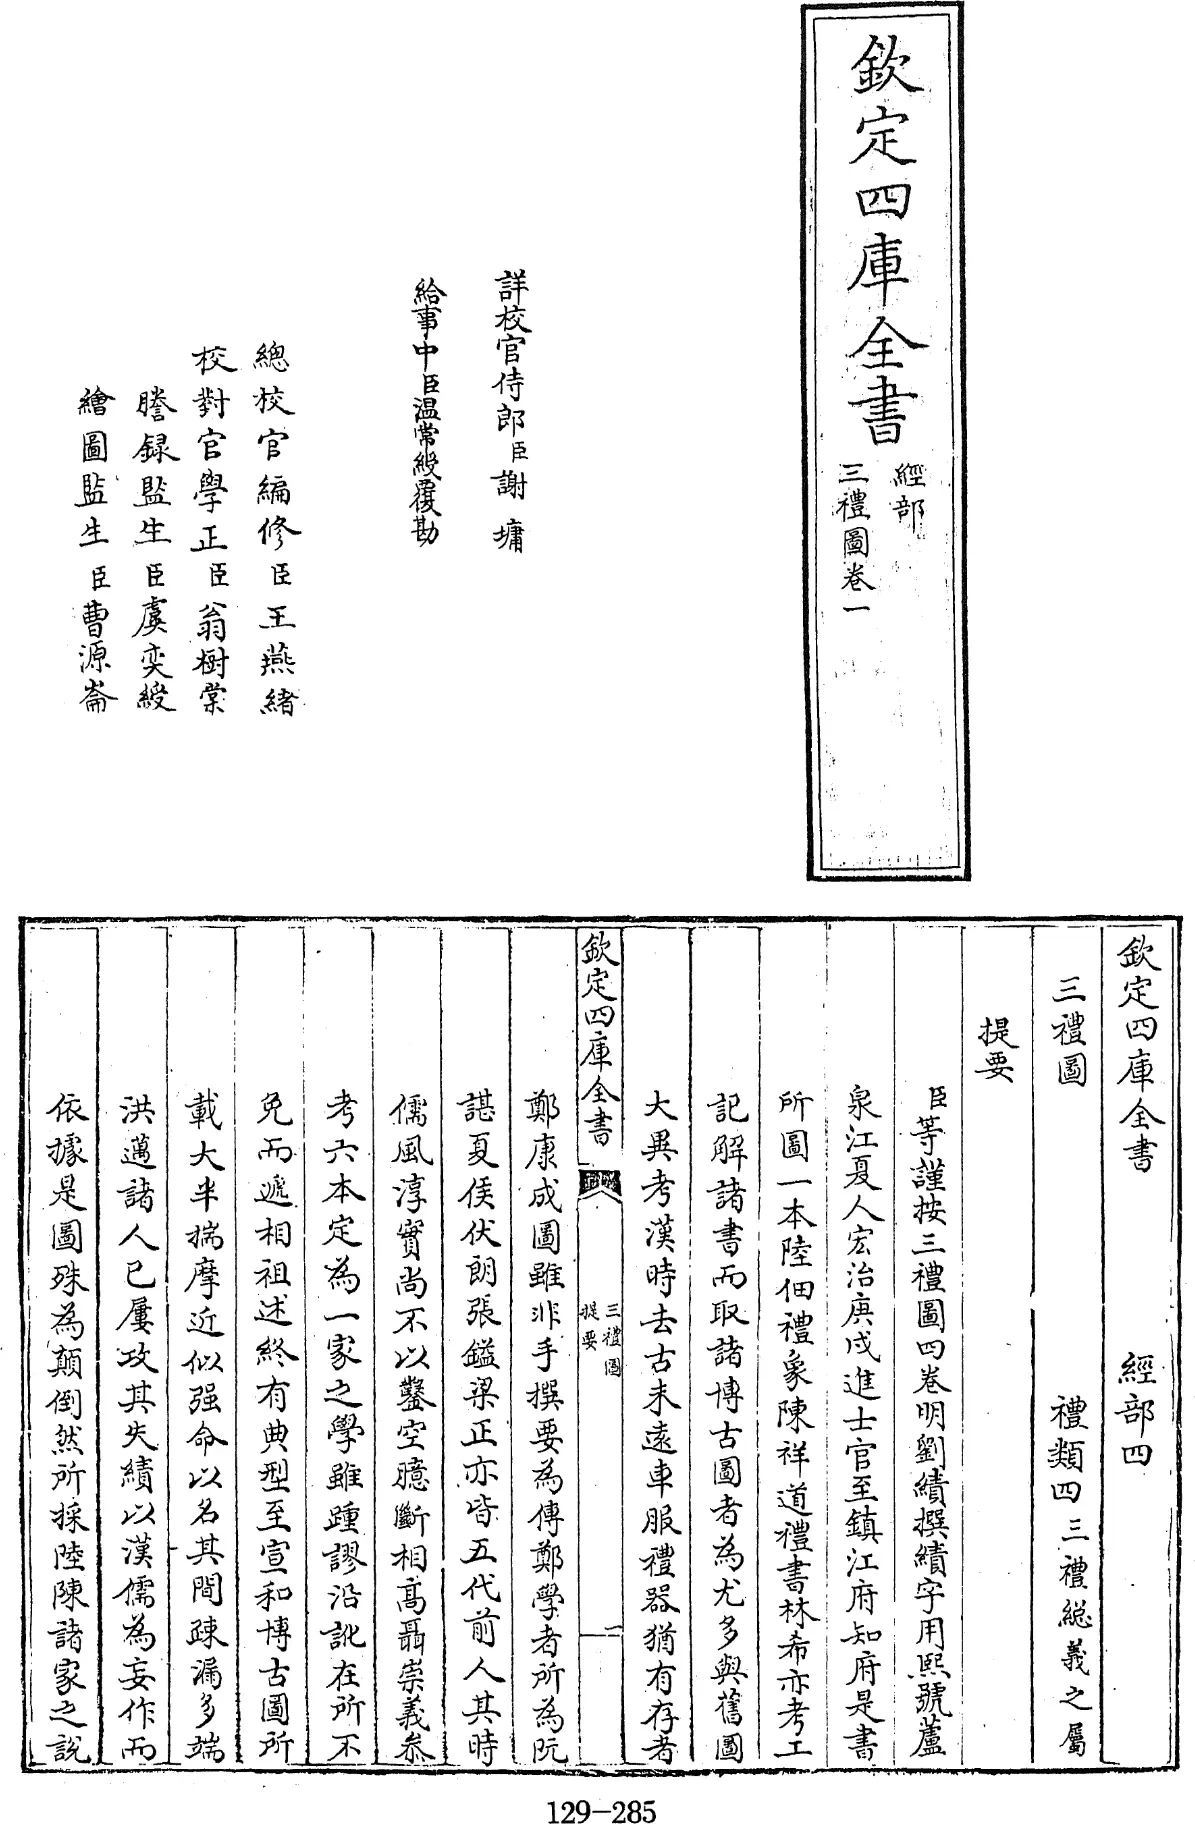 欽定四庫全書
經部
三禮圖卷一
詳校官侍郎臣謝墉
給事中臣温常綬覆勘
總校官編修臣王燕緒
校對官學正臣翁樹棠
謄録監生臣虞奕綬
繪圖監生臣曹源崙
欽定四庫全書 經部四
三禮圖 禮類四三禮總義之屬
提要
臣等謹按三禮圖四卷明劉績撰績字用熙號蘆
泉江夏人宏治庚戍進士官至鎮江府知府是書
所圖一本陸佃禮象陳祥道禮書林希亦考工
記解諸書而取諸博古圖者為尤多與舊圖
大異考漢時去古未遠車服禮器猶有存者
欽定四庫全書
三禮圖
提要
一
鄭康成圖雖非手撰要為傳鄭學者所為阮
諶夏侯伏朗張鎰梁正亦皆五代前人其時
儒風淳實尚不以鑿空臆斷相高聶崇義叅
考六本定為一家之學雖踵謬沿訛在所不
免而遞相祖述終有典型至宣和博古圖所
載大半揣摩近似强命以名其間疎漏多端
洪邁諸人已屢攻其失績以漢儒為妄作而
依據是圖殊為顛倒然所採陸陳諸家之說
129-285